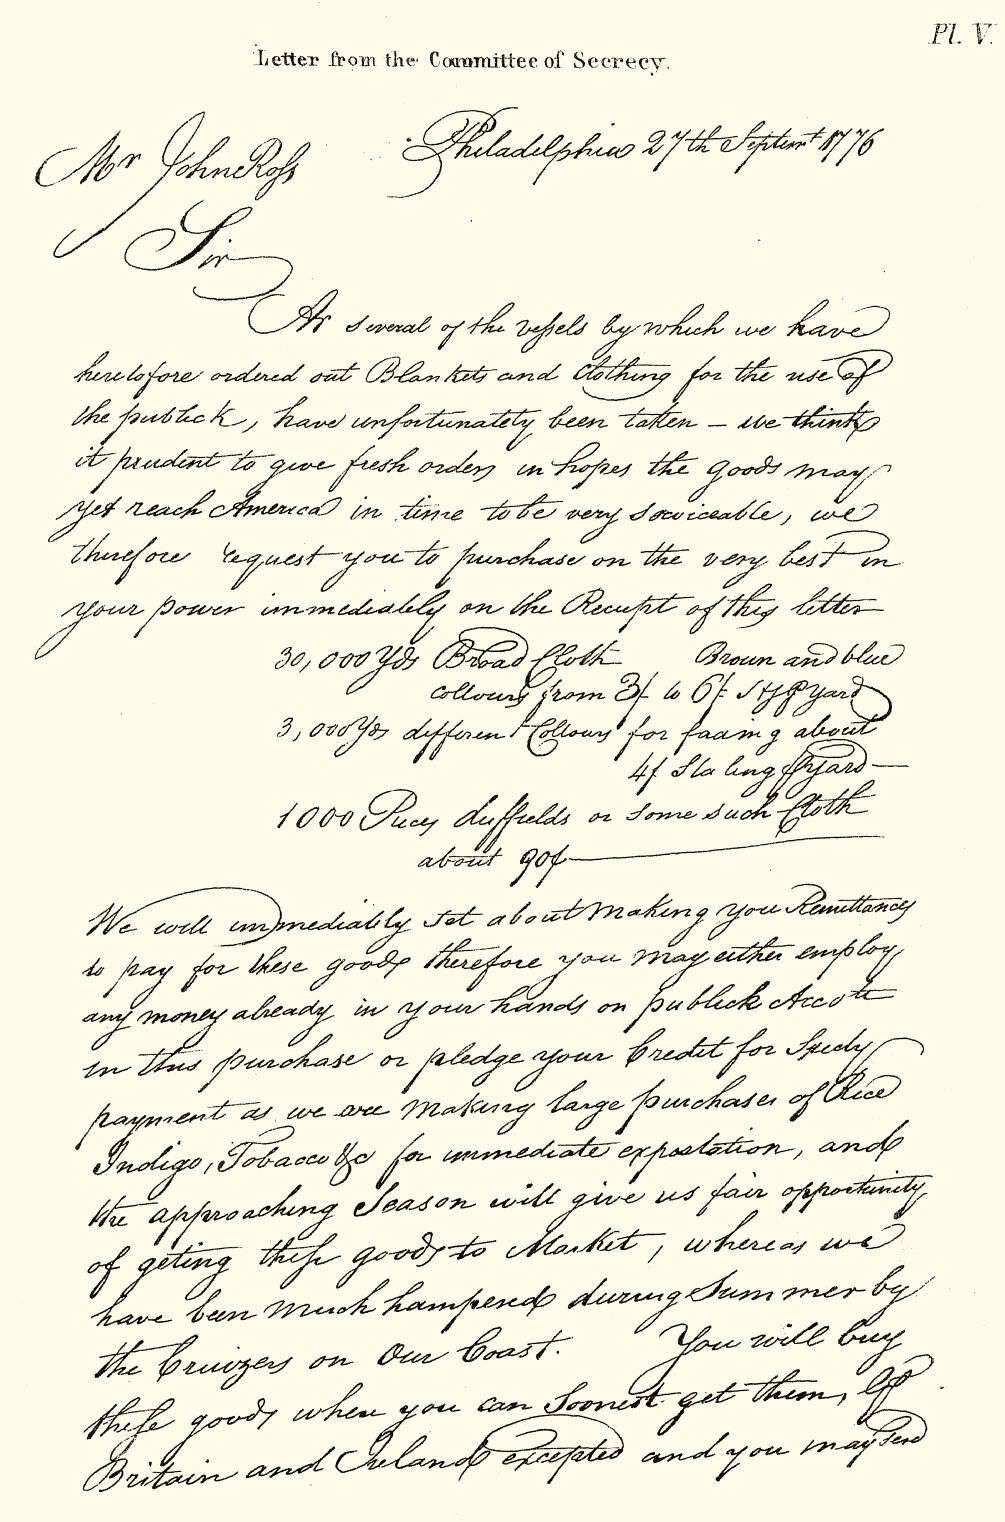 Pl. V.
Letter from the Committee of Secrecy.
Philadelphia 27th Septemr 1776
Mr John Ross
Sir
As several of the vessels by which we have
heretofore ordered out Blankets and Clothing for the use of
the publick, have unfortunately been taken – we think
it prudent to give fresh orders in hopes the goods may
yet reach America in time to be very serviceable, we
therefore request you to purchase on the very best in
your power immediately on the Receipt of this letter
30,000 Yds Broad Cloth Brown and blue
collours from 3/ to 6/ Stg ⅌ yard
3,000 Yds different Collours for faaing about
4/ Starling ⅌ yard —
1000 Pieces duffields or some such Cloth
about 90/ —
We will immediately set about making you Remittances
to pay for these goods therefore you may either employ
any money already in your hands on publick Accotts
in this purchase or pledge your Credit for Speedy
payment as we are making large purchases of Rice
Indigo, Tobacco &c for immediate expostation, and
the approaching Season will give us fair opportunity
of geting these goods to Market, whereas we
have been much hampered during Summer by
the Cruizers on our Coast. You will buy
these goods when you can soonest get them,
Britain and Ireland excepted and you may send